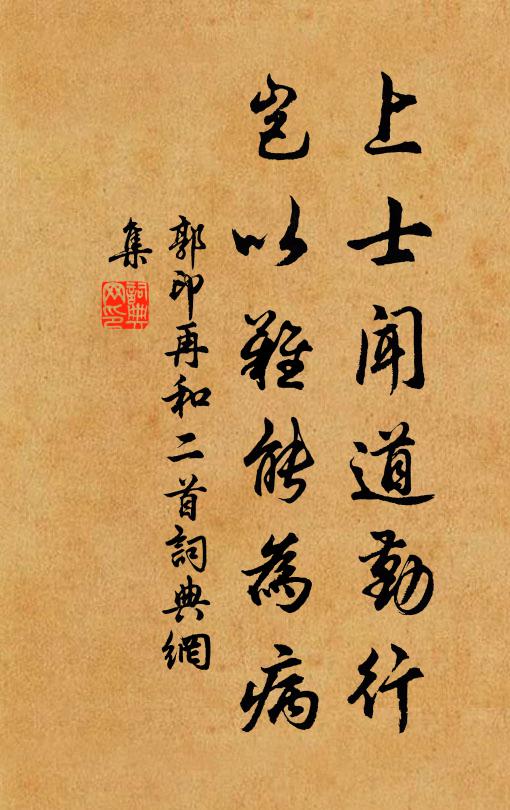 上士闻道勤行
岂以難能為病
郭印再和二首詞典網
集
詞典网印